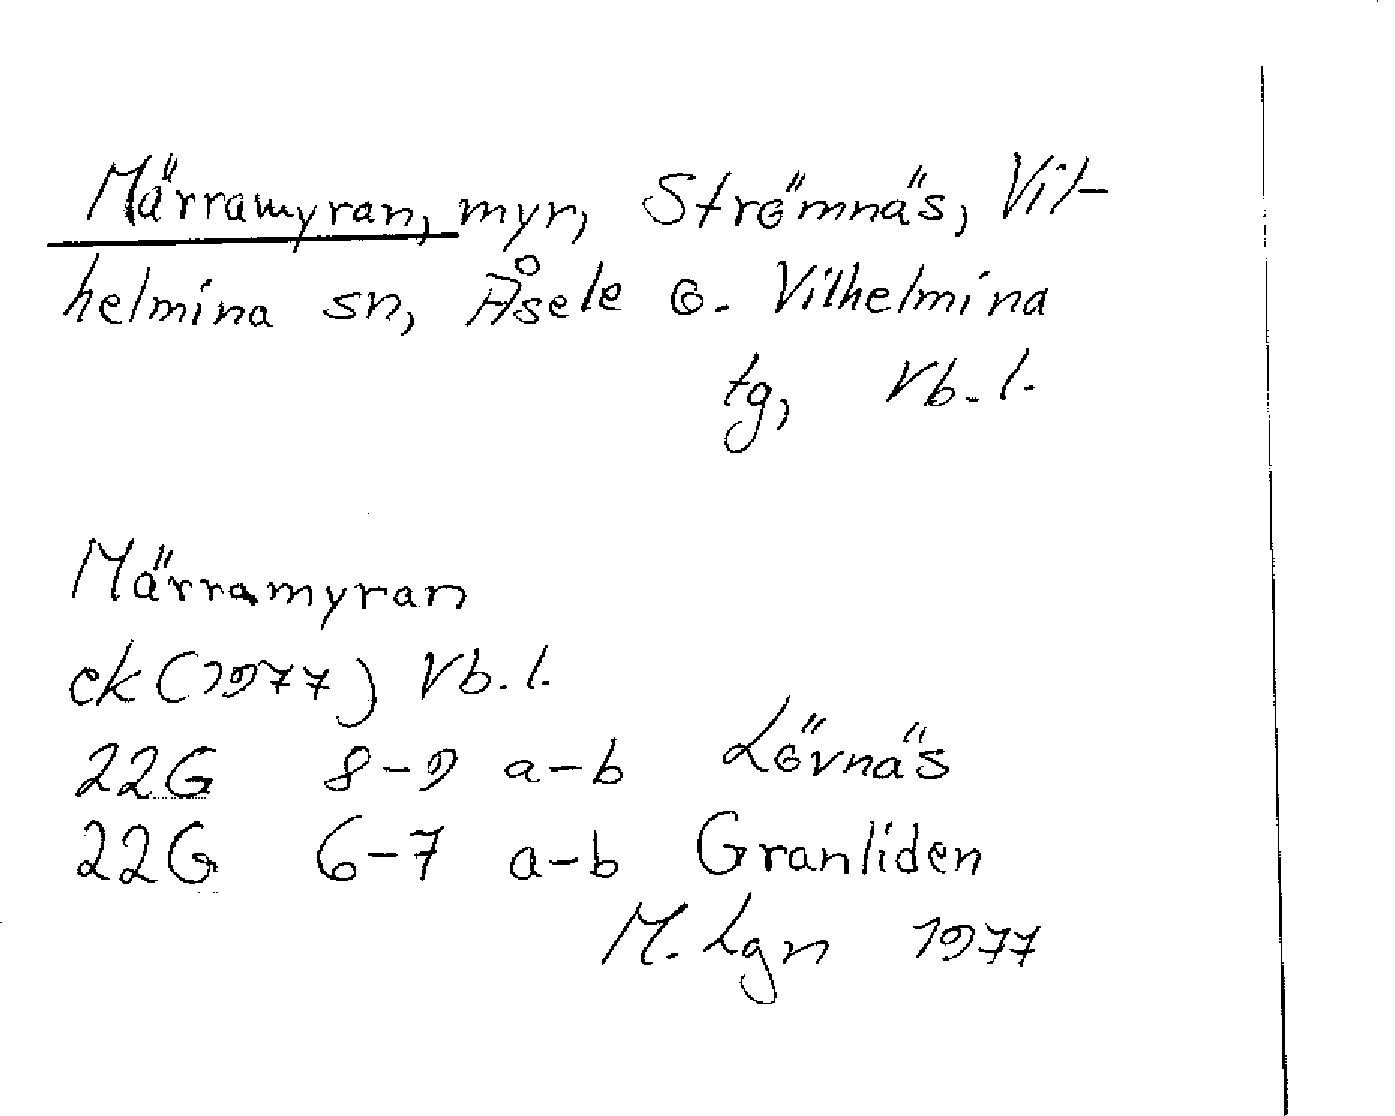 Märramyran, myr, Strömnäs, Vil-
helmina sn, Åsele o. Vilhelmina
tg, Vb. l.
Märramyran
ek (1977) Vb. l.
22G 8-9 a-b Lövnäs
22G 6-7 a-b Granliden
M. Lgn 1977